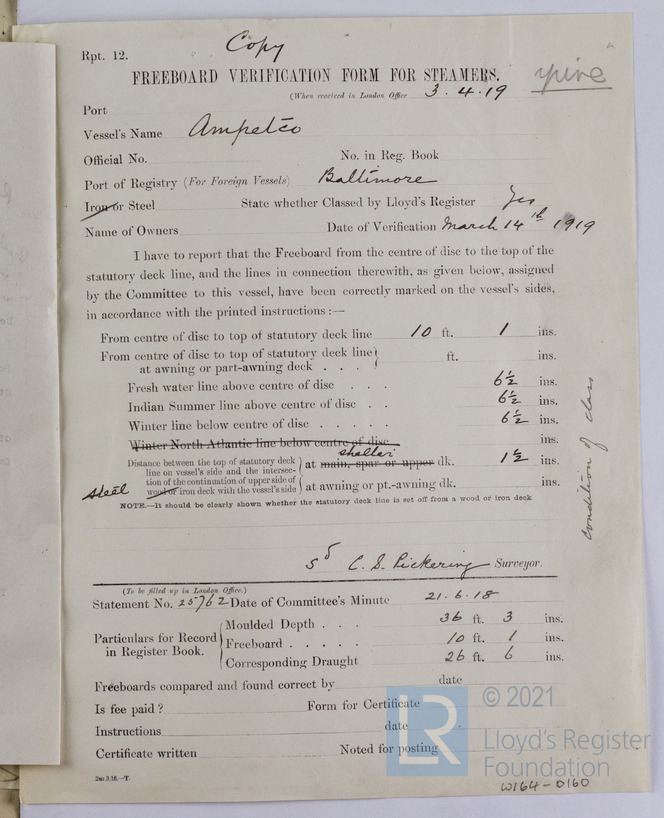 Copy
Rpt. 12.
FREEBOARD VERIFICATION FORM FOR STEAMERS.
(When received in London Office 3.4.19
Port
Vessel's Name Ampetco
Official No. No. in Reg. Book
Port of Registry (For Foreign Vessels) Baltimore
Iron or Steel State whether Classed by Lloyd's Register Yes
Name of Owners Date of Verification March 14th 1919
I have to report that the Freeboard from the centre of disc to the top of the
statutory deck line, and the lines in connection therewith, as given below, assigned
by the Committee to this vessel, have been correctly marked on the vessel's sides,
in accordance with the printed instructions :—
From centre of disc to top of statutory deck line 10 ft. 1 ins.
From centre of disc to top of statutory deck line
at awning or part-awning deck . . . ft. ins.
Fresh water line above centre of disc . . . 6½ ins.
Indian Summer line above centre of disc . . 6½ ins.
Winter line below centre of disc . . . . . 6½ ins.
Winter North Atlantic line below centre of disc ins.
shelter
Distance between the top of statutory deck
line on vessel's side and the intersec-
tion of the continuation of upper side of
steel wood or iron deck with the vessel's side
at main, spar or upper dk. 1½ ins.
at awning or pt.-awning dk. ins.
NOTE.—It should be clearly shown whether the statutory deck line is set off from a wood or iron deck
condition of class
sd C. S. Pickering Surveyor.
(To be filled up in London Office.)
Statement No. 25762 Date of Committee's Minute 21.6.18
Particulars for Record
in Register Book.
Moulded Depth . . . 36 ft. 3 ins.
Freeboard . . . . . 10 ft. 1 ins.
Corresponding Draught 26 ft. 6 ins.
Freeboards compared and found correct by date
Is fee paid ? Form for Certificate
Instructions date
Certificate written Noted for posting
2m.9,16.—T.
LR
© 2021
Lloyd's Register
Foundation
W164-0160